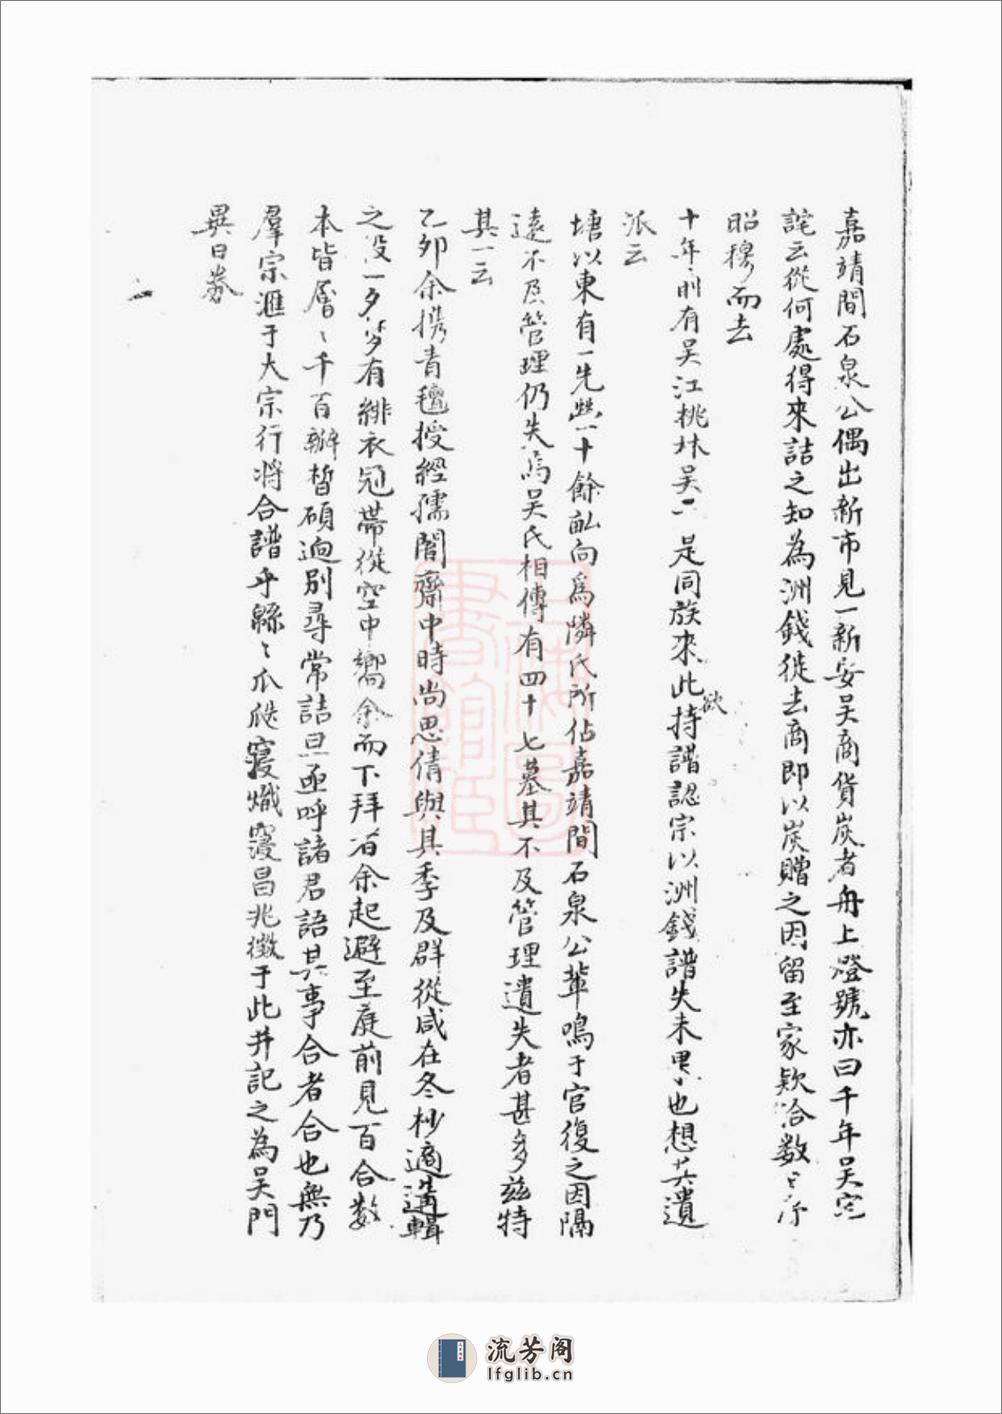 嘉靖間石泉公偶出新市見一新安吴商貨炭者舟上燈號亦曰千年吴宅
詫云從何處得來詰之知為洲錢徙去商即以炭贈之因留至家欵洽数日序
昭穆而去
十年前有吴江桃林吴 是同族來此欲持譜認宗以洲錢譜失未果也想其遺
派云
塘以東有一先塋十餘畝向爲隣氏所佔嘉靖間石泉公輩鳴于官復之因隔
遠不及管理仍失焉吴氏相傳有四十七墓其不及管理遺失者甚多兹特
其一云
乙卯余携青氊授經孺閣齋中時尚思倩與其季及群從咸在冬杪適遘輯
之役一夕夢有緋衣冠帶從空中嚮余而下拜者余起避至庭前見百合数
本皆層〻千百瓣皙碩逈别尋常詰旦亟呼諸君語其事合者合也無乃
羣宗滙于大宗行将合譜乎緜〻瓜瓞寖熾寖昌兆徵于此并記之為吴門
異日券
流芳阁
lfglib.cn